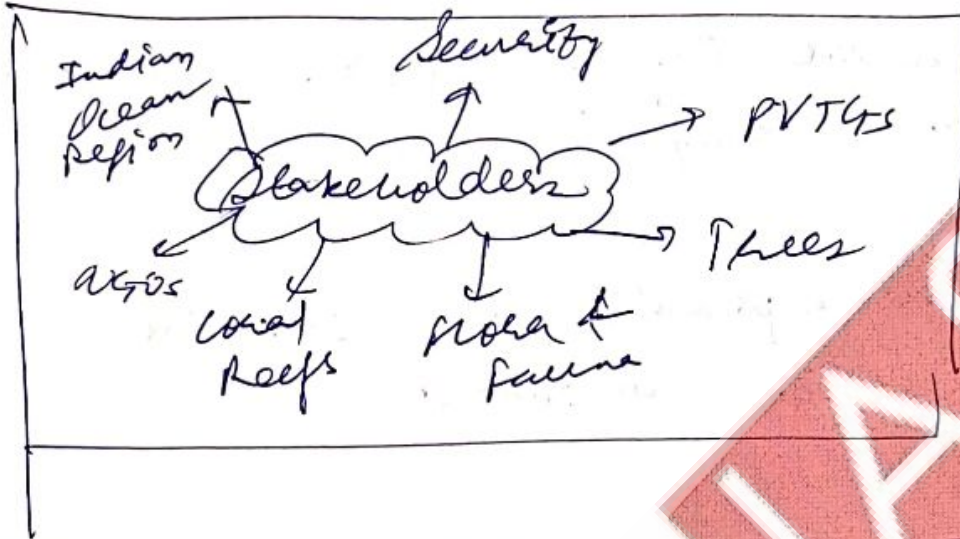 Indian
Ocean
Region
Security
PVTGs
Stakeholders
Trees
NGOs
Coral
Reefs
Flora &
Fauna
IAS